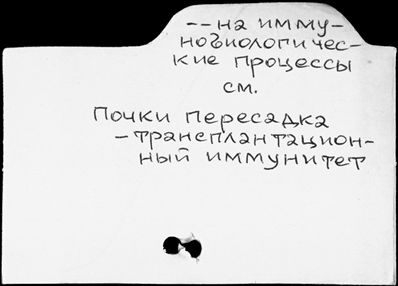 -- на имму-
нобиологичес-
кие процессы
см.
Почки пересадка
- трансплантацион-
ный иммунитет